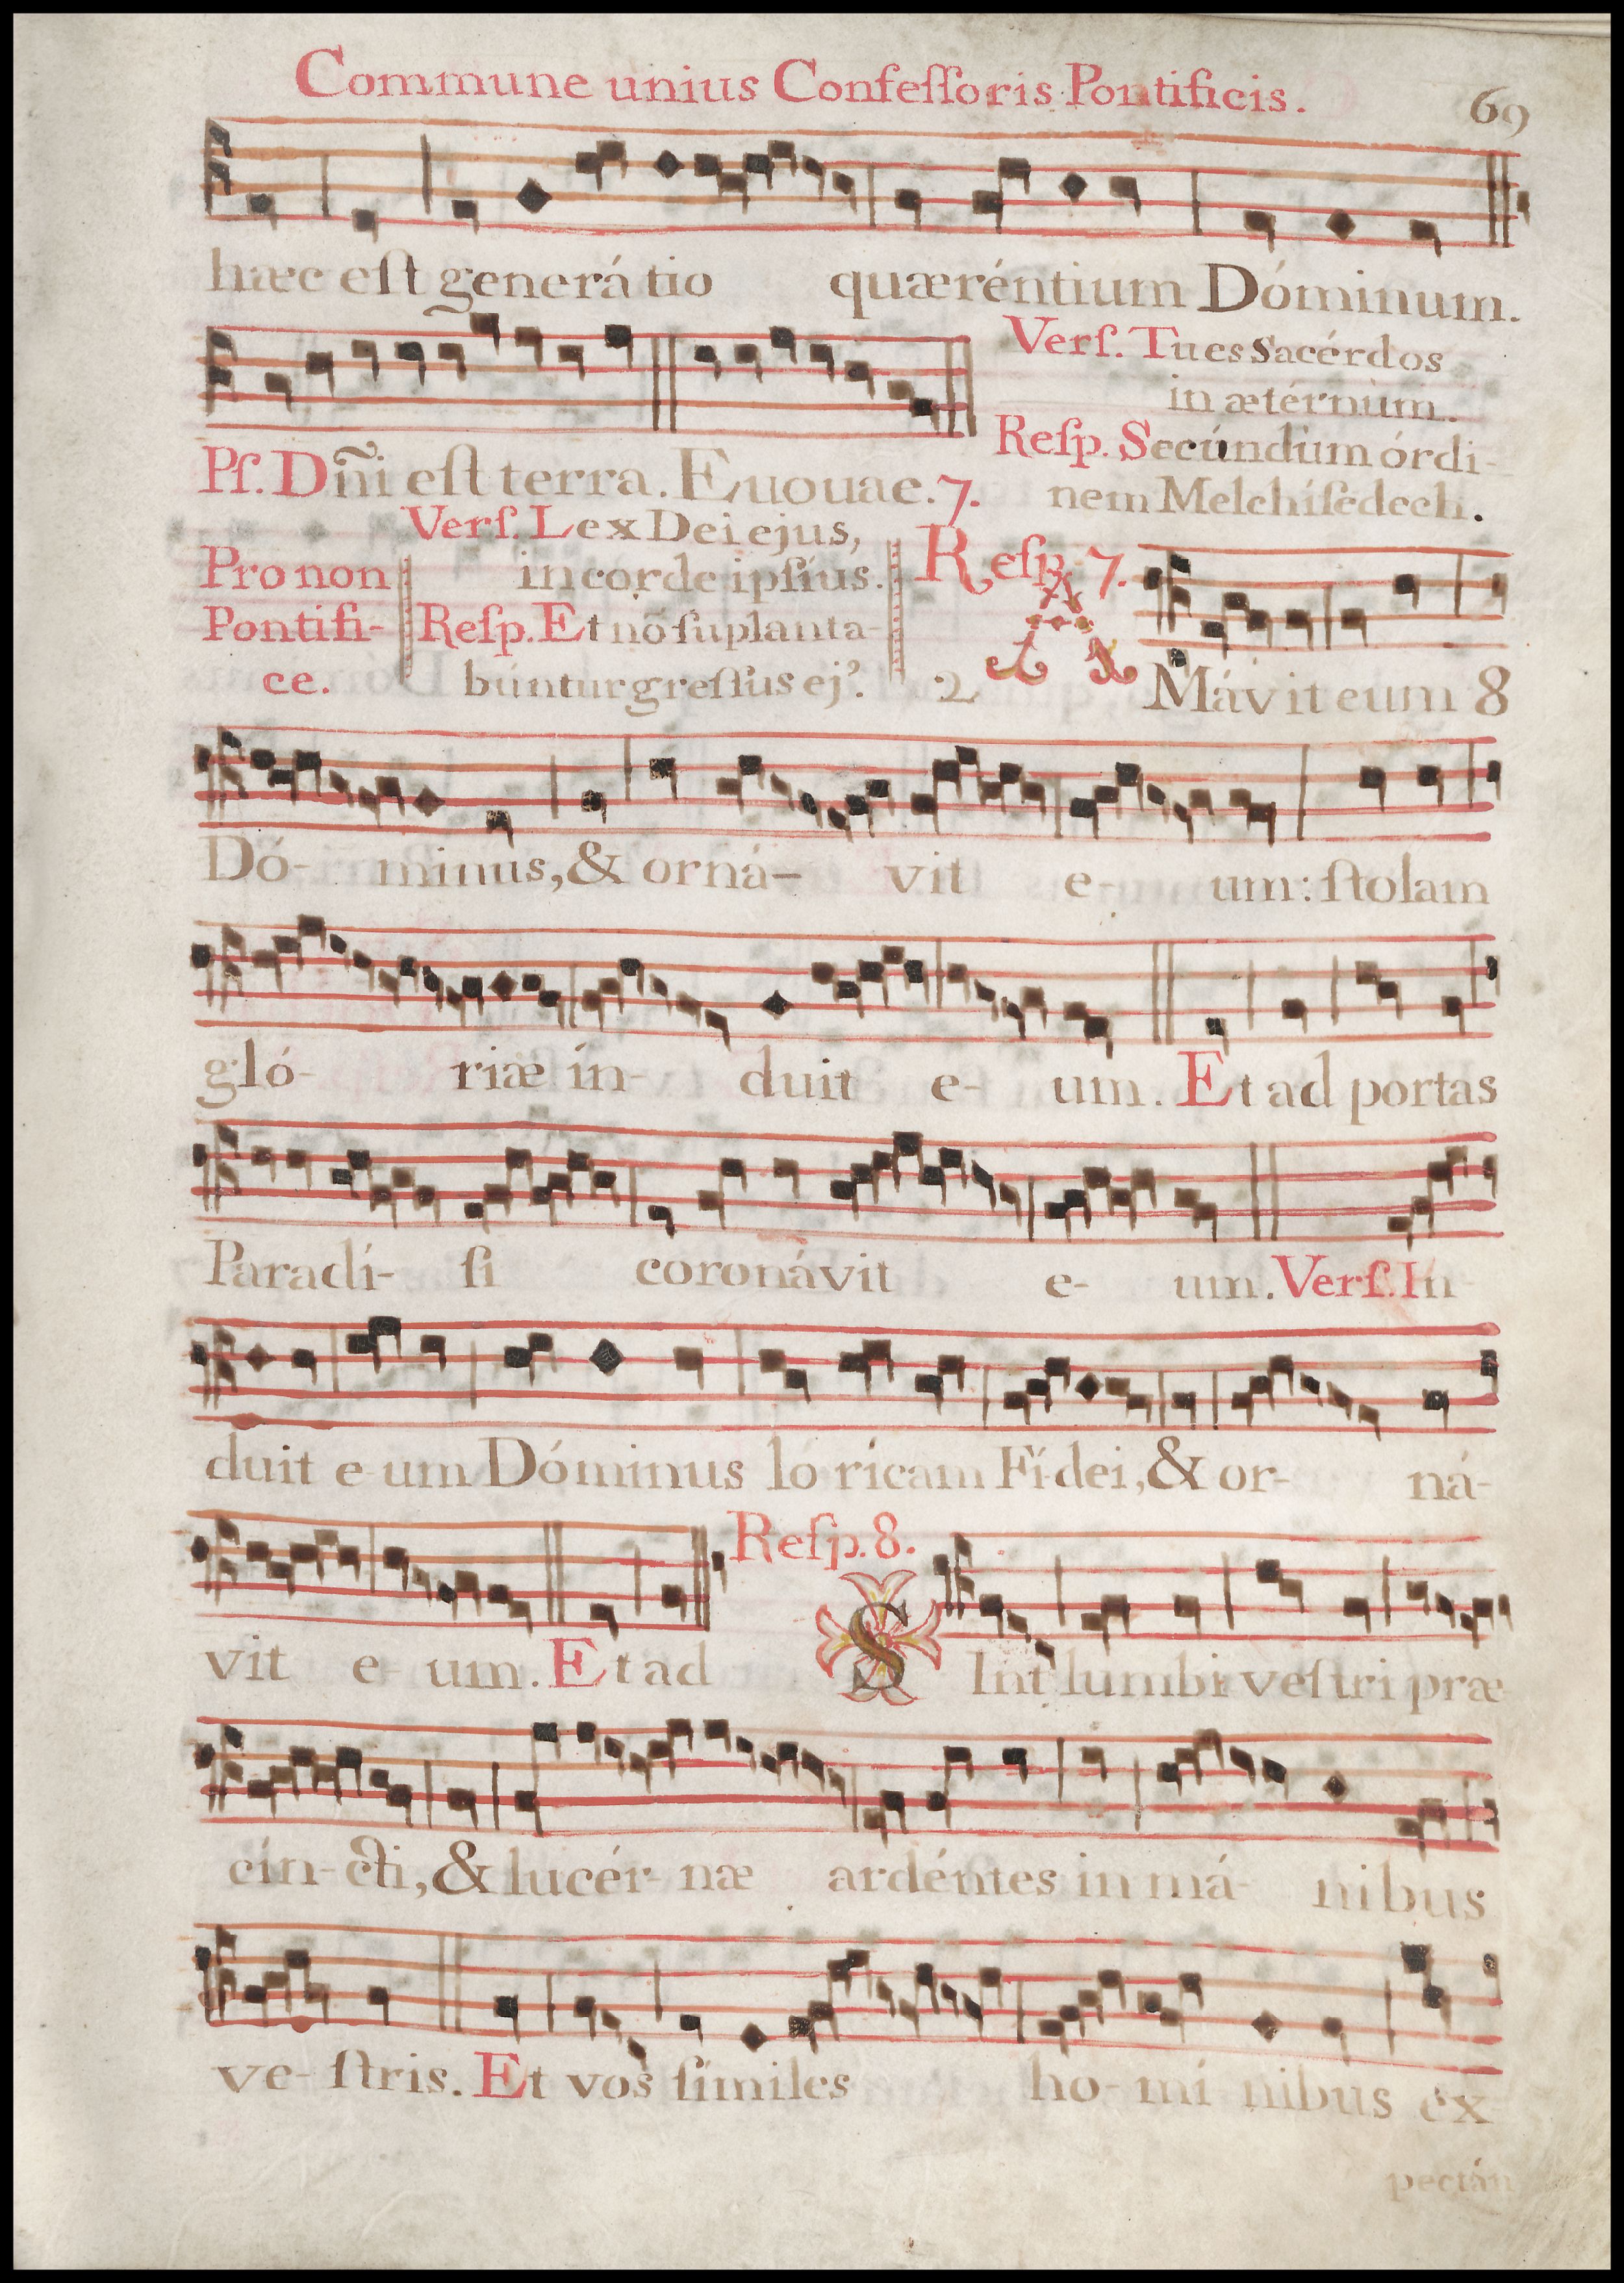 Commune unius Confeſſoris Pontificis.
69
hæc eſt generátio quæréntium Dóminum.
Verſ. Tu es Sacérdos
in ætérnum.
Reſp. Secúndum órdi-
nem Melchíſedech.
Pſ. Dn̄i eſt terra. Euouae. 7.
Pro non
Pontifi-
ce.
Verſ. Lex Dei ejus,
in corde ipſíus.
Reſp. Et nō ſuplanta-
búntur greſſus ej⁹.
Reſp. 7.
2 A Mávit eum 8
Dó- minus, & orná- vit e- um: ſtolam
gló- riæ ín- duit e- um. Et ad portas
Paradí- ſi coronávit e- um. Verſ. In-
duit e-um Dóminus lo ricam Fídei, & or- ná-
vit e- um. Et ad
Reſp. 8.
S Int lumbi veſtri præ-
cín- cti, & lucér- næ ardéntes in má- nibus
ve- ſtris. Et vos ſímiles ho- mí nibus ex
pectán